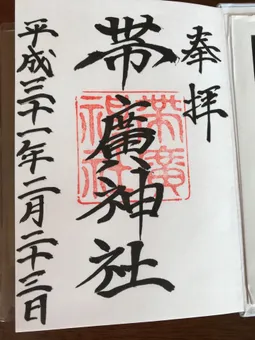 奉拝
帯廣神社
平成三十一年二月二十三日
帯廣神社